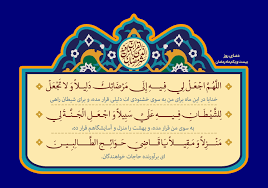 دعای روز
بیست و یکم ماه رمضان
اللّهُمَّ اجْعَلْ لِي فِيهِ إِلَى مَرْضَاتِكَ دَلِيلاً وَ لاَ تَجْعَلْ
خدایا در این ماه برای من به سوی خشنودی ات دلیلی قرار مده، و برای شیطان راهی
لِلشَّيْطَانِ فِيهِ عَلَيَّ سَبِيلاً وَ اجْعَلِ الْجَنَّةَ لِي
به سوی من قرار مده، و بهشت را منزل و آسایشگاهم قرار ده،
مَنْزِلاً وَ مَقِيلاً يَا قَاضِيَ حَوَائِجِ الطَّالِبِينَ
ای برآورنده حاجات خواهندگان.